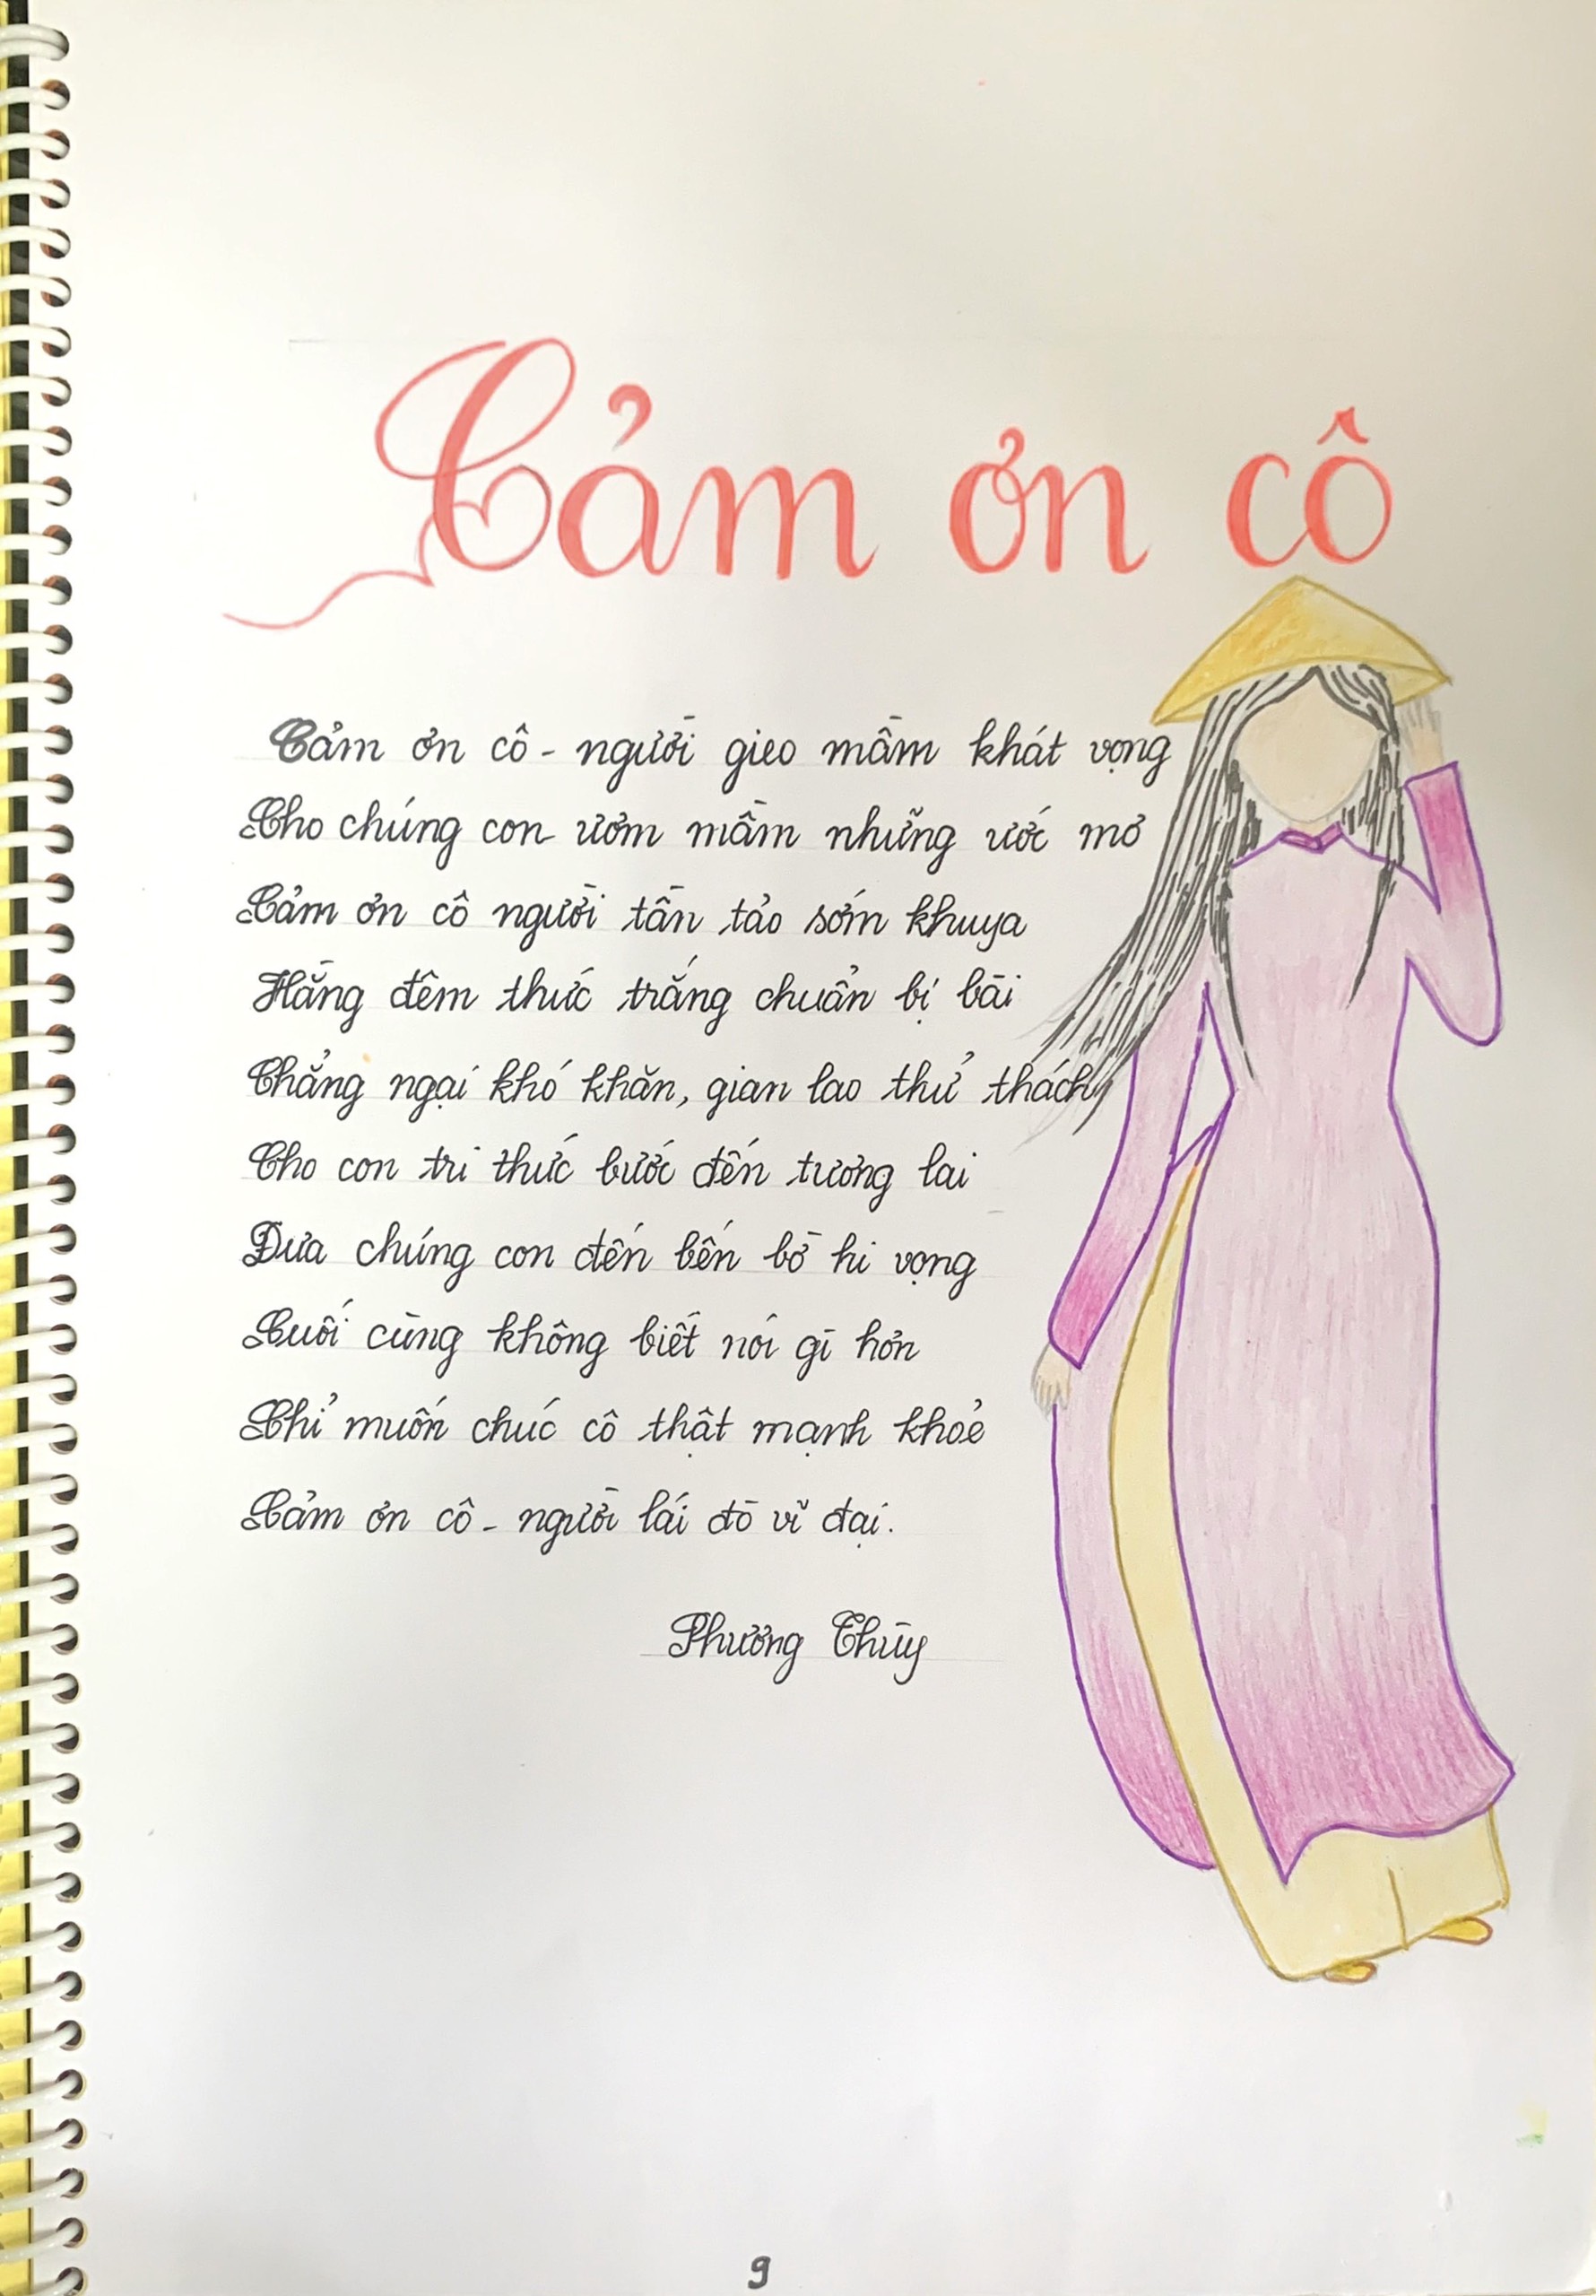 Cảm ơn cô
Cảm ơn cô - người gieo mầm khát vọng
Cho chúng con ươm mầm những ước mơ
Cảm ơn cô người tần tảo sớm khuya
Hằng đêm thức trắng chuẩn bị bài
Chẳng ngại khó khăn, gian lao thử thách
Cho con tri thức bước đến tương lai
Đưa chúng con đến bến bờ hi vọng
Cuối cùng không biết nói gì hơn
Chỉ muốn chúc cô thật mạnh khoẻ
Cảm ơn cô - người lái đò vĩ đại.
Phương Thùy
9